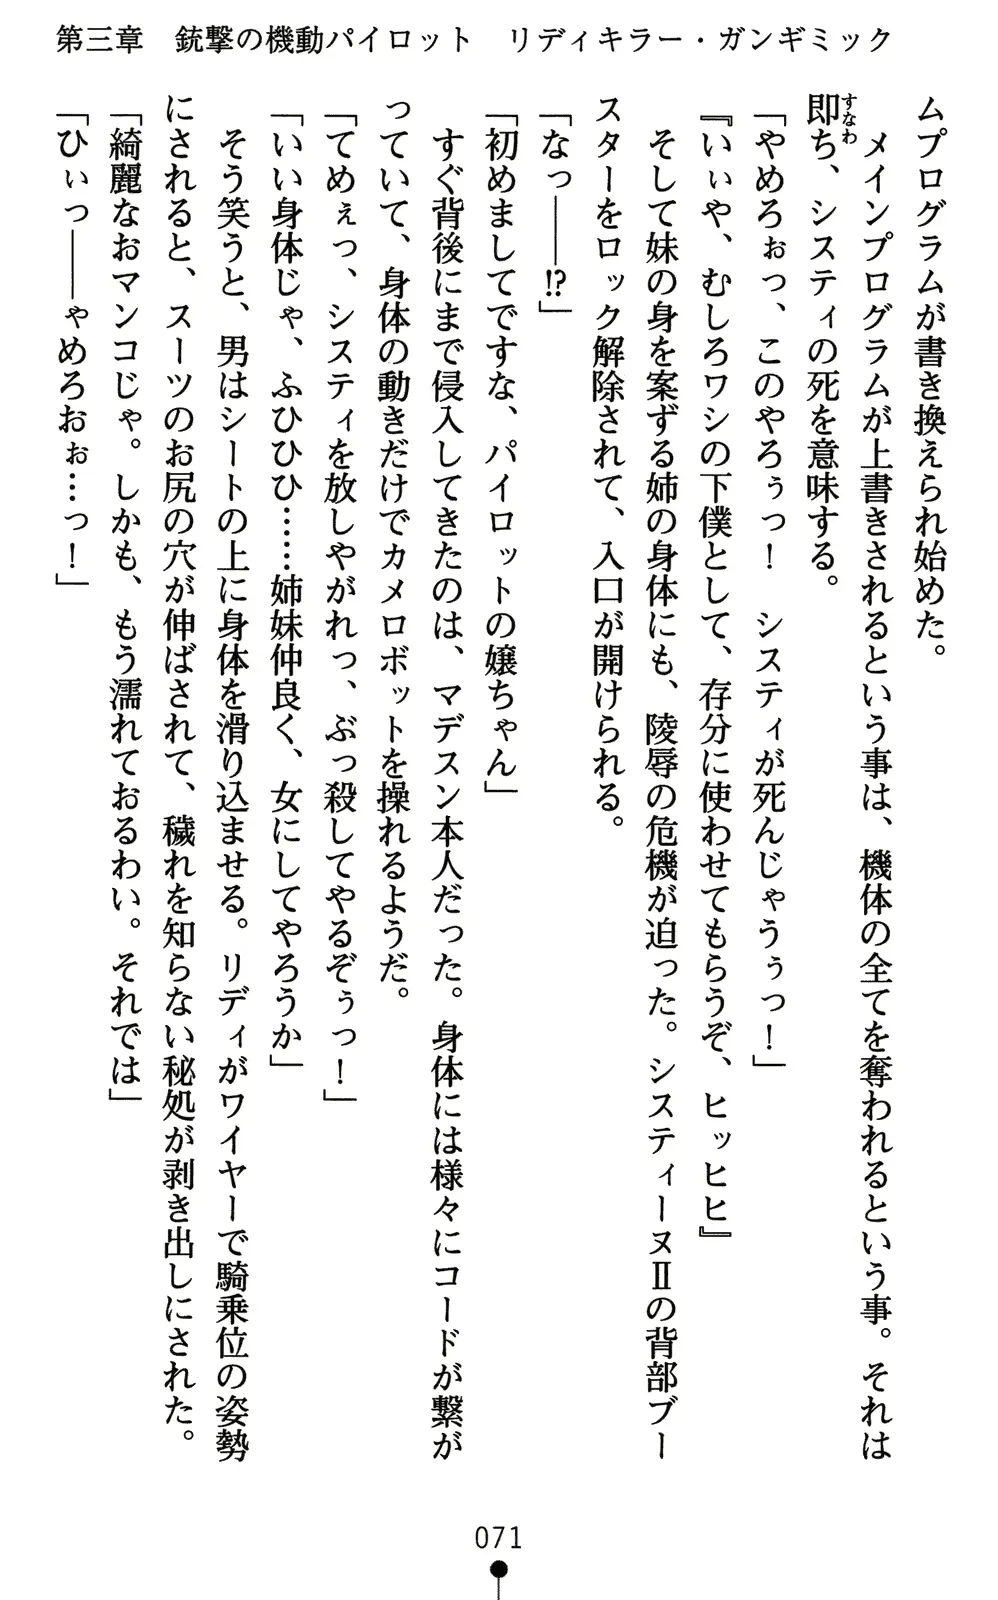 第三章　銃撃の機動パイロット　リディキラー・ガンギミック
ムプログラムが書き換えられ始めた。
　メインプログラムが上書きされるという事は、機体の全てを奪われるという事。それは
即ち、システィの死を意味する。
すなわ
「やめろぉっ、このやろぅっ！　システィが死んじゃうぅっ！」
『いぃや、むしろワシの下僕として、存分に使わせてもらうぞ、ヒッヒヒ』
　そして妹の身を案ずる姉の身体にも、陵辱の危機が迫った。システィーヌⅡの背部ブー
スターをロック解除されて、入口が開けられる。
「なっ――!?」
「初めましてですな、パイロットの嬢ちゃん」
　すぐ背後にまで侵入してきたのは、マデスン本人だった。身体には様々にコードが繋が
っていて、身体の動きだけでカメロボットを操れるようだ。
「てめぇっ、システィを放しやがれっ、ぶっ殺してやるぞぅっ！」
「いい身体じゃ、ふひひひ……姉妹仲良く、女にしてやろうか」
　そう笑うと、男はシートの上に身体を滑り込ませる。リディがワイヤーで騎乗位の姿勢
にされると、スーツのお尻の穴が伸ばされて、穢れを知らない秘処が剥き出しにされた。
「綺麗なおマンコじゃ。しかも、もう濡れておるわい。それでは」
「ひぃっ――ゃめろおぉ…っ！」
071